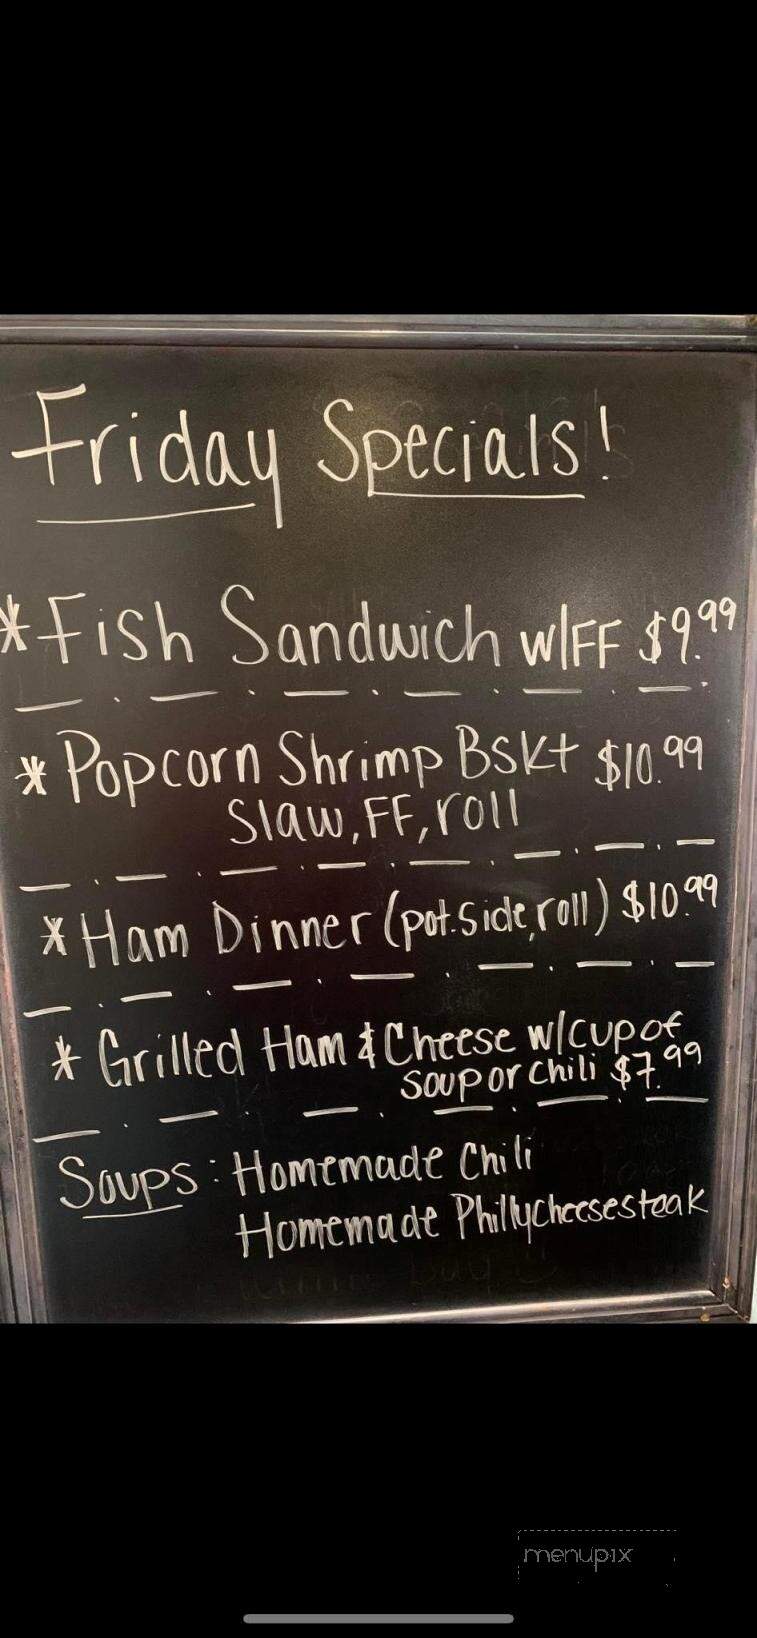 Friday Specials!
*Fish Sandwich w/FF $9.99
*Popcorn Shrimp Bskt $10.99
Slaw, FF, roll
*Ham Dinner (pot.side, roll) $10.99
*Grilled Ham & Cheese w/cup of
soup or chili $7.99
Soups: Homemade Chili
Homemade Phillycheesesteak
menupix